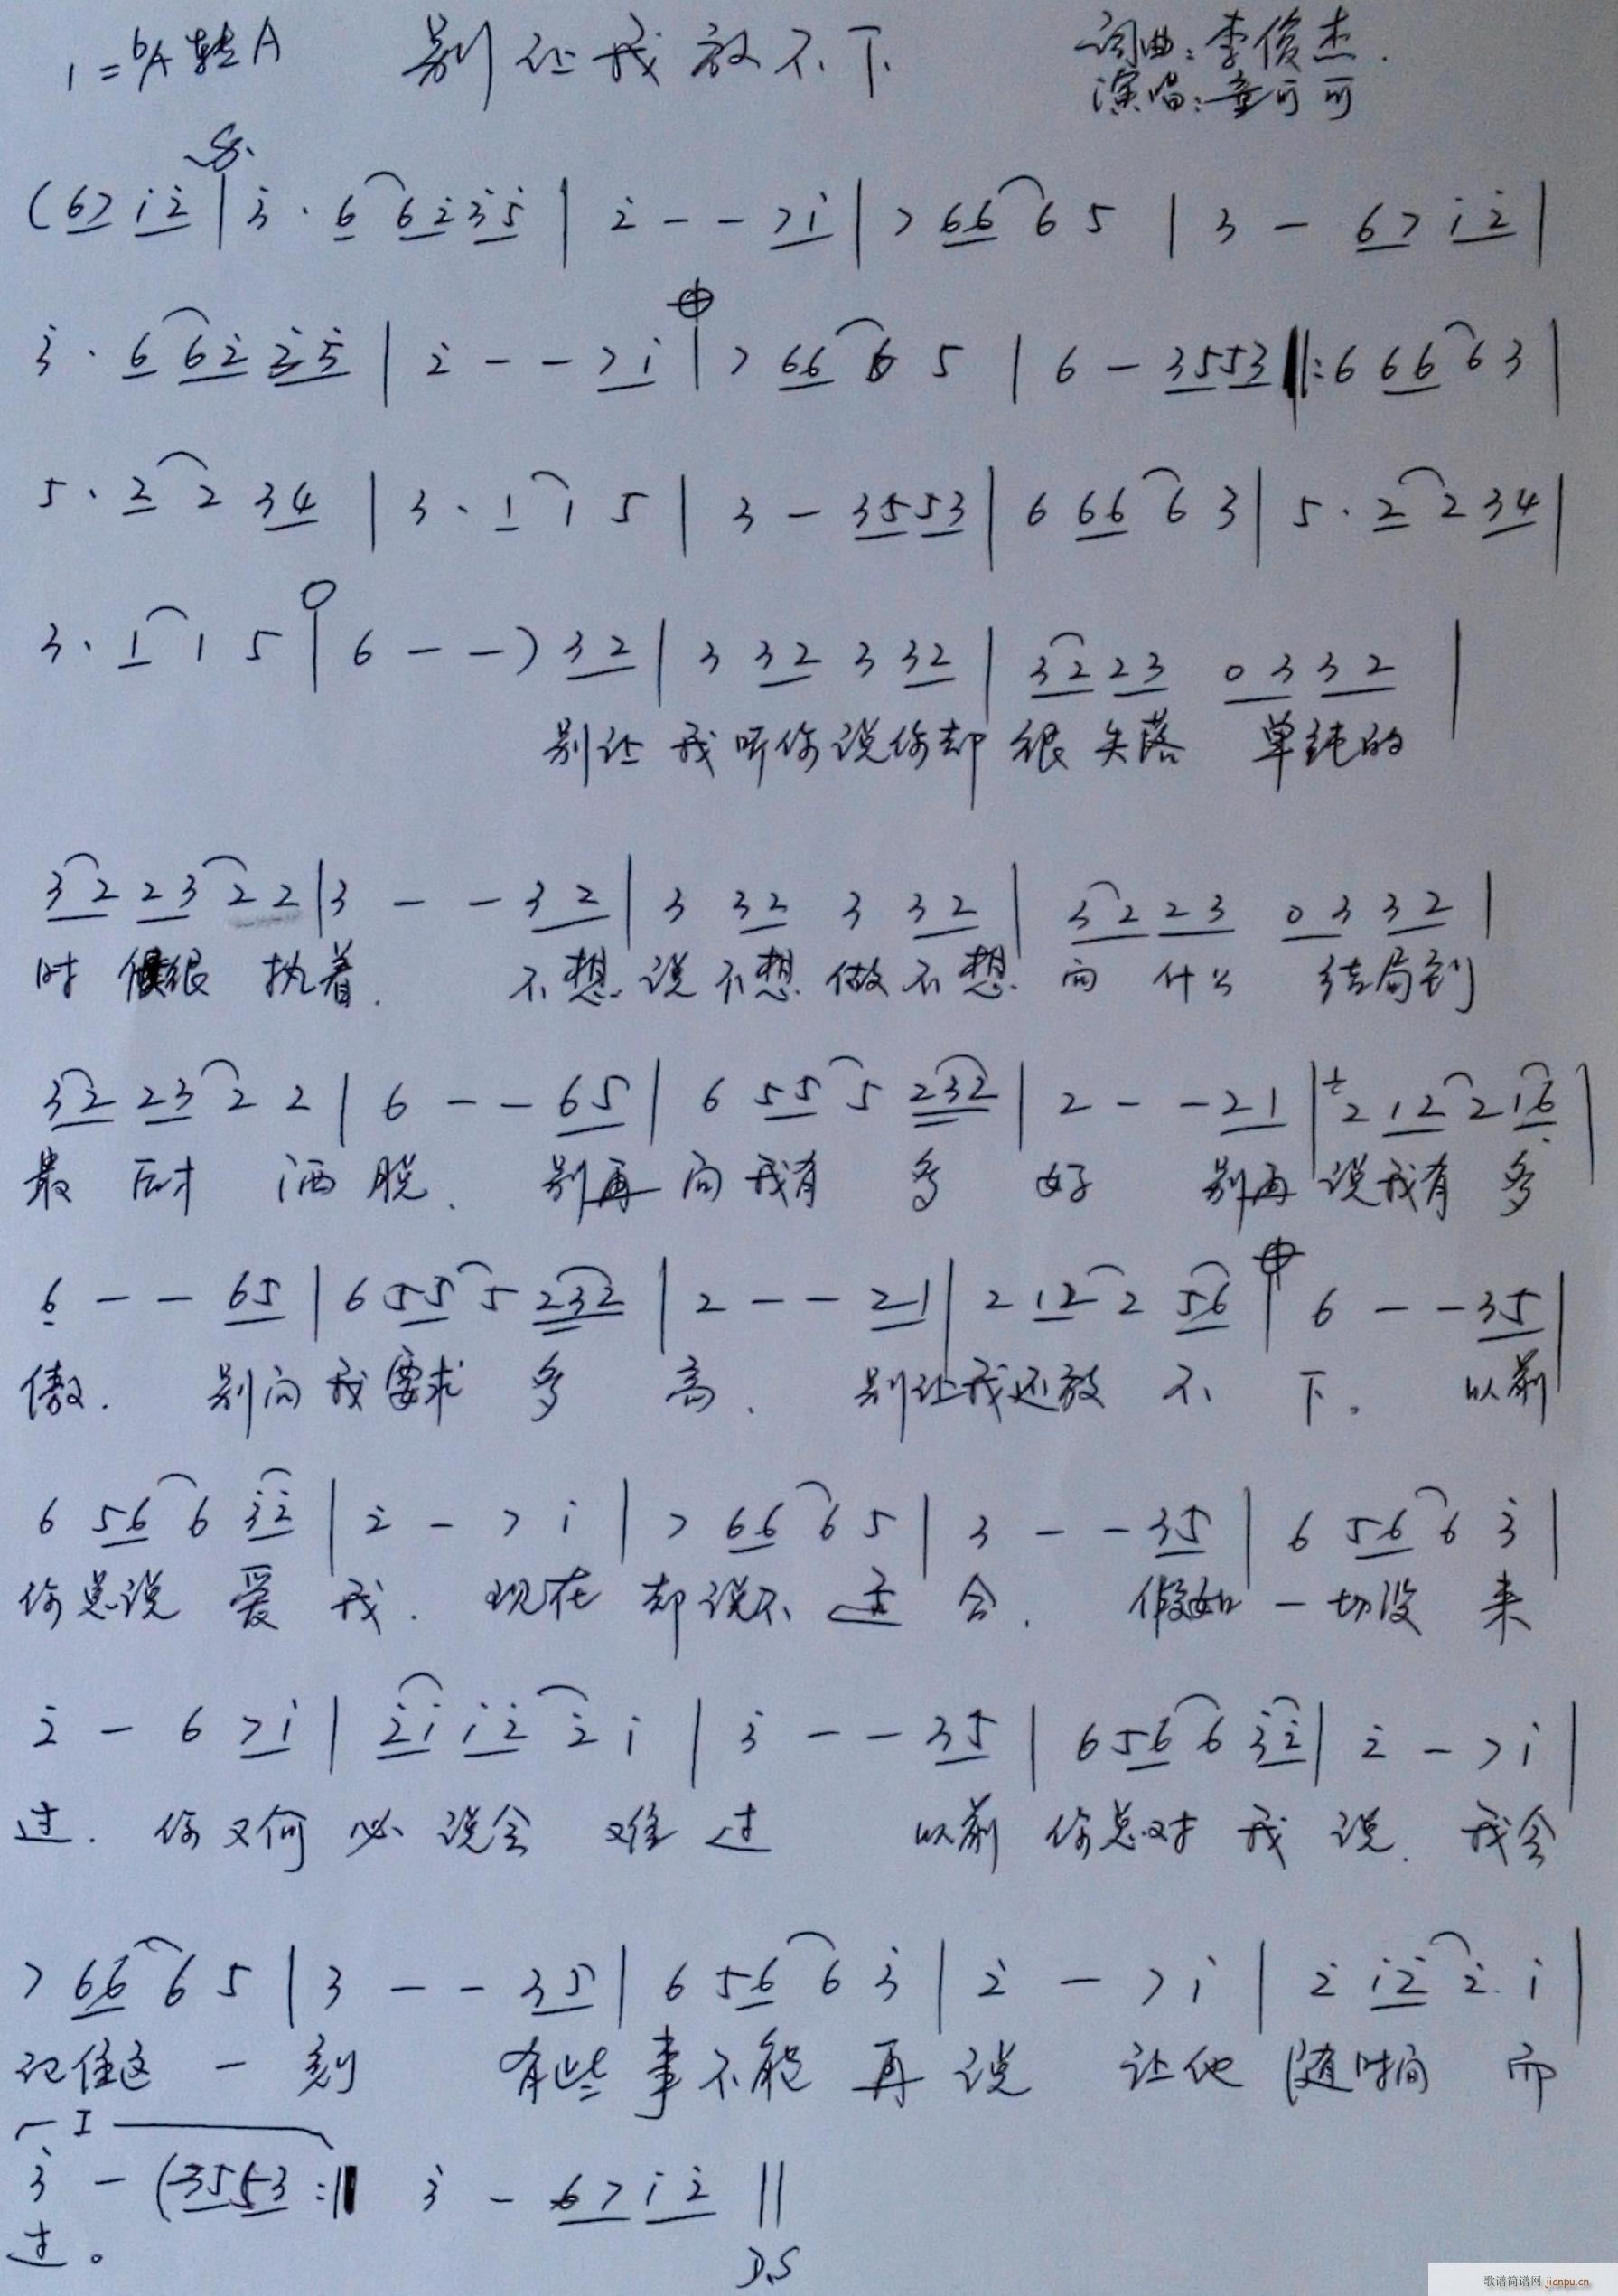 1=♭A转A 别让我放不下 词曲:李俊杰.
演唱:童可可
(67 i̇ 2̇ | 3̇ · 6 6 2̇ 3̇ 5̇ | 2̇ - - 7 i̇ | 7 6 6 6 5 | 3 - 6 7 i̇ 2̇ |
3̇ · 6 6 2̇ 3̇ 5̇ | 2̇ - - 7 i̇ | 7 6 6 6 5 | 6 - 3 5 5 3 ‖: 6 6 6 6 3 |
5 · 2 2 3 4 | 3 · 1 1 5 | 3 - 3 5 5 3 | 6 6 6 6 3 | 5 · 2 2 3 4 |
3 · 1 1 5 | 6 - - ) 3 2 | 3 3 2 3 3 2 | 3 2 2 3 0 3 3 2 |
别让 我听你说你却 很 失落 单纯的
3 2 2 3 2 2 | 3 - - 3 2 | 3 3 2 3 3 2 | 3 2 2 3 0 3 3 2 |
时 候很 执着. 不想 说不想 做不想 问 什么 结局到
3 2 2 3 2 2 | 6 - - 6 5 | 6 5 5 5 2 3 2 | 2 - - 2 1 | 2 1 2 2 1 6̣ |
最 后才 洒 脱. 别再 问我有 多 好 别再 说我有 多
6̣ - - 6 5 | 6 5 5 5 2 3 2 | 2 - - 2 1 | 2 1 2 2 5 6 | 6 - - 3 5 |
傲. 别问 我要求 多 高. 别让我还放 不 下。 以前
6 5 6 6 3̇ 2̇ | 2̇ - 7 i̇ | 7 6 6 6 5 | 3 - - 3 5 | 6 5 6 6 3̇ |
你总说 爱 我. 现在 却说不 适 合. 假如 一切没 来
2̇ - 6 7 i̇ | 2̇ i̇ i̇ 2̇ 2̇ i̇ | 3̇ - - 3 5 | 6 5 6 6 3̇ 2̇ | 2̇ - 7 i̇ |
过. 你又何 必 说会 难 过 以前 你总对 我 说. 我会
7 6 6 6 5 | 3 - - 3 5 | 6 5 6 6 3̇ | 2̇ - 7 i̇ | 2̇ i̇ 2̇ 2̇ i̇ |
记住这 一 刻 有些 事不能 再 说 让他 随时间 而
I
3̇ - (3 5 5 3 :‖ 3̇ - 6 7 i̇ 2̇ ‖
过。 D.S
歌谱简谱网 jianpu.cn